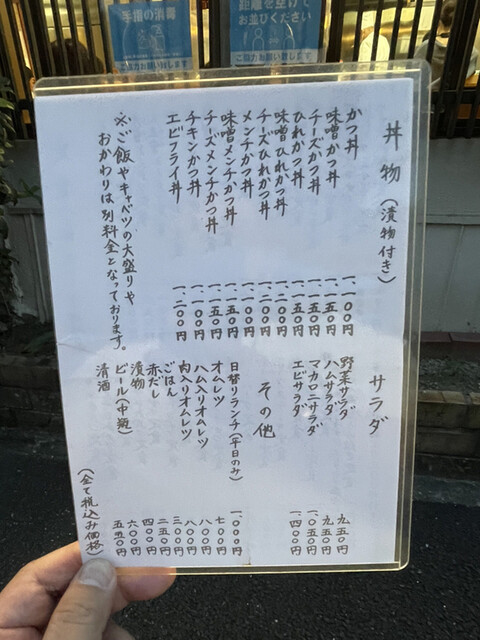 手指の消毒
ご協力お願いします
距離を空けて
お並びください
ご協力お願いします
丼物（漬物付き）
かつ丼 一、一〇〇円
味噌かつ丼 一、一五〇円
チーズかつ丼 一、一五〇円
ひれかつ丼 一、一五〇円
味噌ひれかつ丼 一、二〇〇円
チーズひれかつ丼 一、二〇〇円
メンチかつ丼 一、一〇〇円
味噌メンチかつ丼 一、一五〇円
チーズメンチかつ丼 一、一五〇円
チキンかつ丼 一、一〇〇円
エビフライ丼 一、二〇〇円
※ご飯やキャベツの大盛りや
おかわりは別料金となっております。
サラダ
野菜サラダ 九五〇円
ハムサラダ 九五〇円
マカロニサラダ 一、〇五〇円
エビサラダ 一、四〇〇円
その他
日替りランチ（平日のみ） 一、〇〇〇円
オムレツ 七〇〇円
ハム入りオムレツ 八〇〇円
肉入りオムレツ 八〇〇円
ごはん 三〇〇円
赤だし 二五〇円
漬物 四〇〇円
ビール（中瓶） 六〇〇円
清酒 五五〇円
（全て税込み価格）